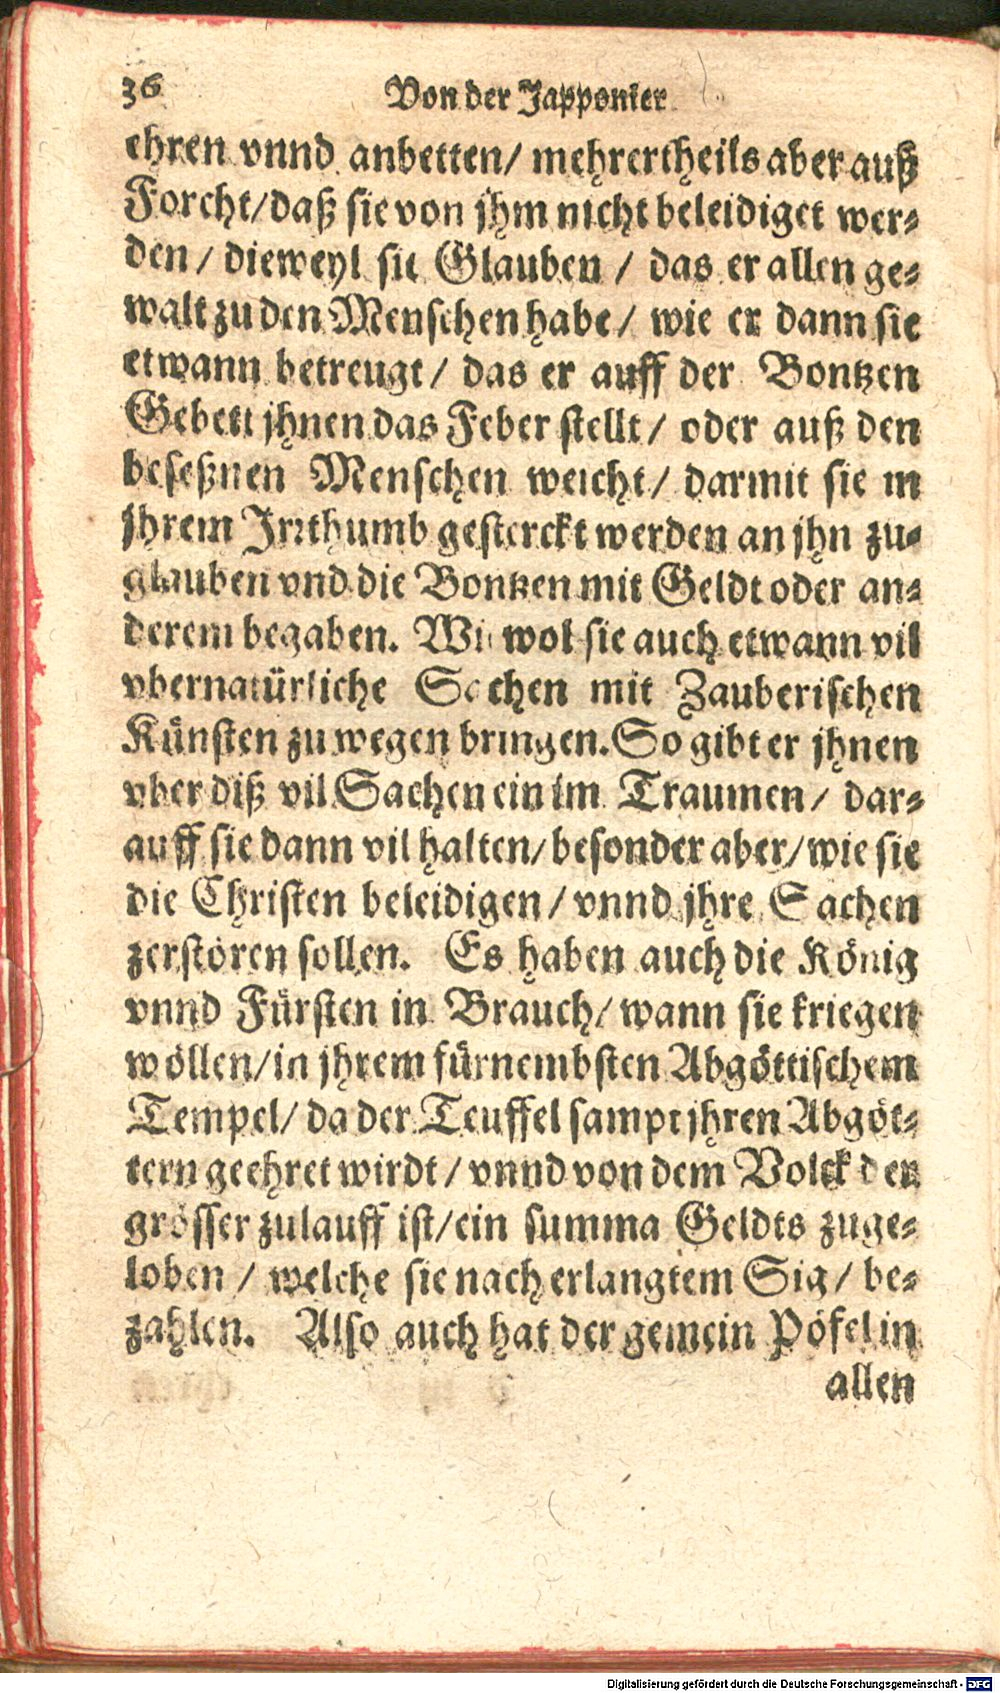 36 Von der Japponier
ehren vnnd anbetten/ mehrertheils aber auß
Forcht/daß sie von jhm nicht beleidiget wer-
den/ dieweyl sie Glauben/ das er allen ge-
walt zu den Menschen habe/ wie er dann sie
etwann betreugt/ das er auff der Bontzen
Gebett jhnen das Feber stellt/ oder auß den
beseßnen Menschen weicht/ darmit sie in
jhrem Jrrthumb gesterckt werden an jhn zu-
glauben vnd die Bontzen mit Geldt oder an-
derem begaben. Wie wol sie auch etwann vil
vbernatürliche Sachen mit Zauberischen
Künsten zu wegen bringen. So gibt er jhnen
vber diß vil Sachen ein im Traumen/ dar-
auff sie dann vil halten/ besonder aber/ wie sie
die Christen beleidigen/ vnnd jhre Sachen
zerstören sollen. Es haben auch die König
vnnd Fürsten in Brauch/ wann sie kriegen
wöllen/in jhrem fürnembsten Abgöttischem
Tempel/ da der Teuffel sampt jhren Abgöt-
tern geehret wirdt/ vnnd von dem Volck der
grösser zulauff ist/ein summa Geldts zuge-
loben/ welche sie nach erlangtem Sig/ be-
zahlen. Also auch hat der gemein Pöfel in
allen
Digitalisierung gefördert durch die Deutsche Forschungsgemeinschaft - DFG